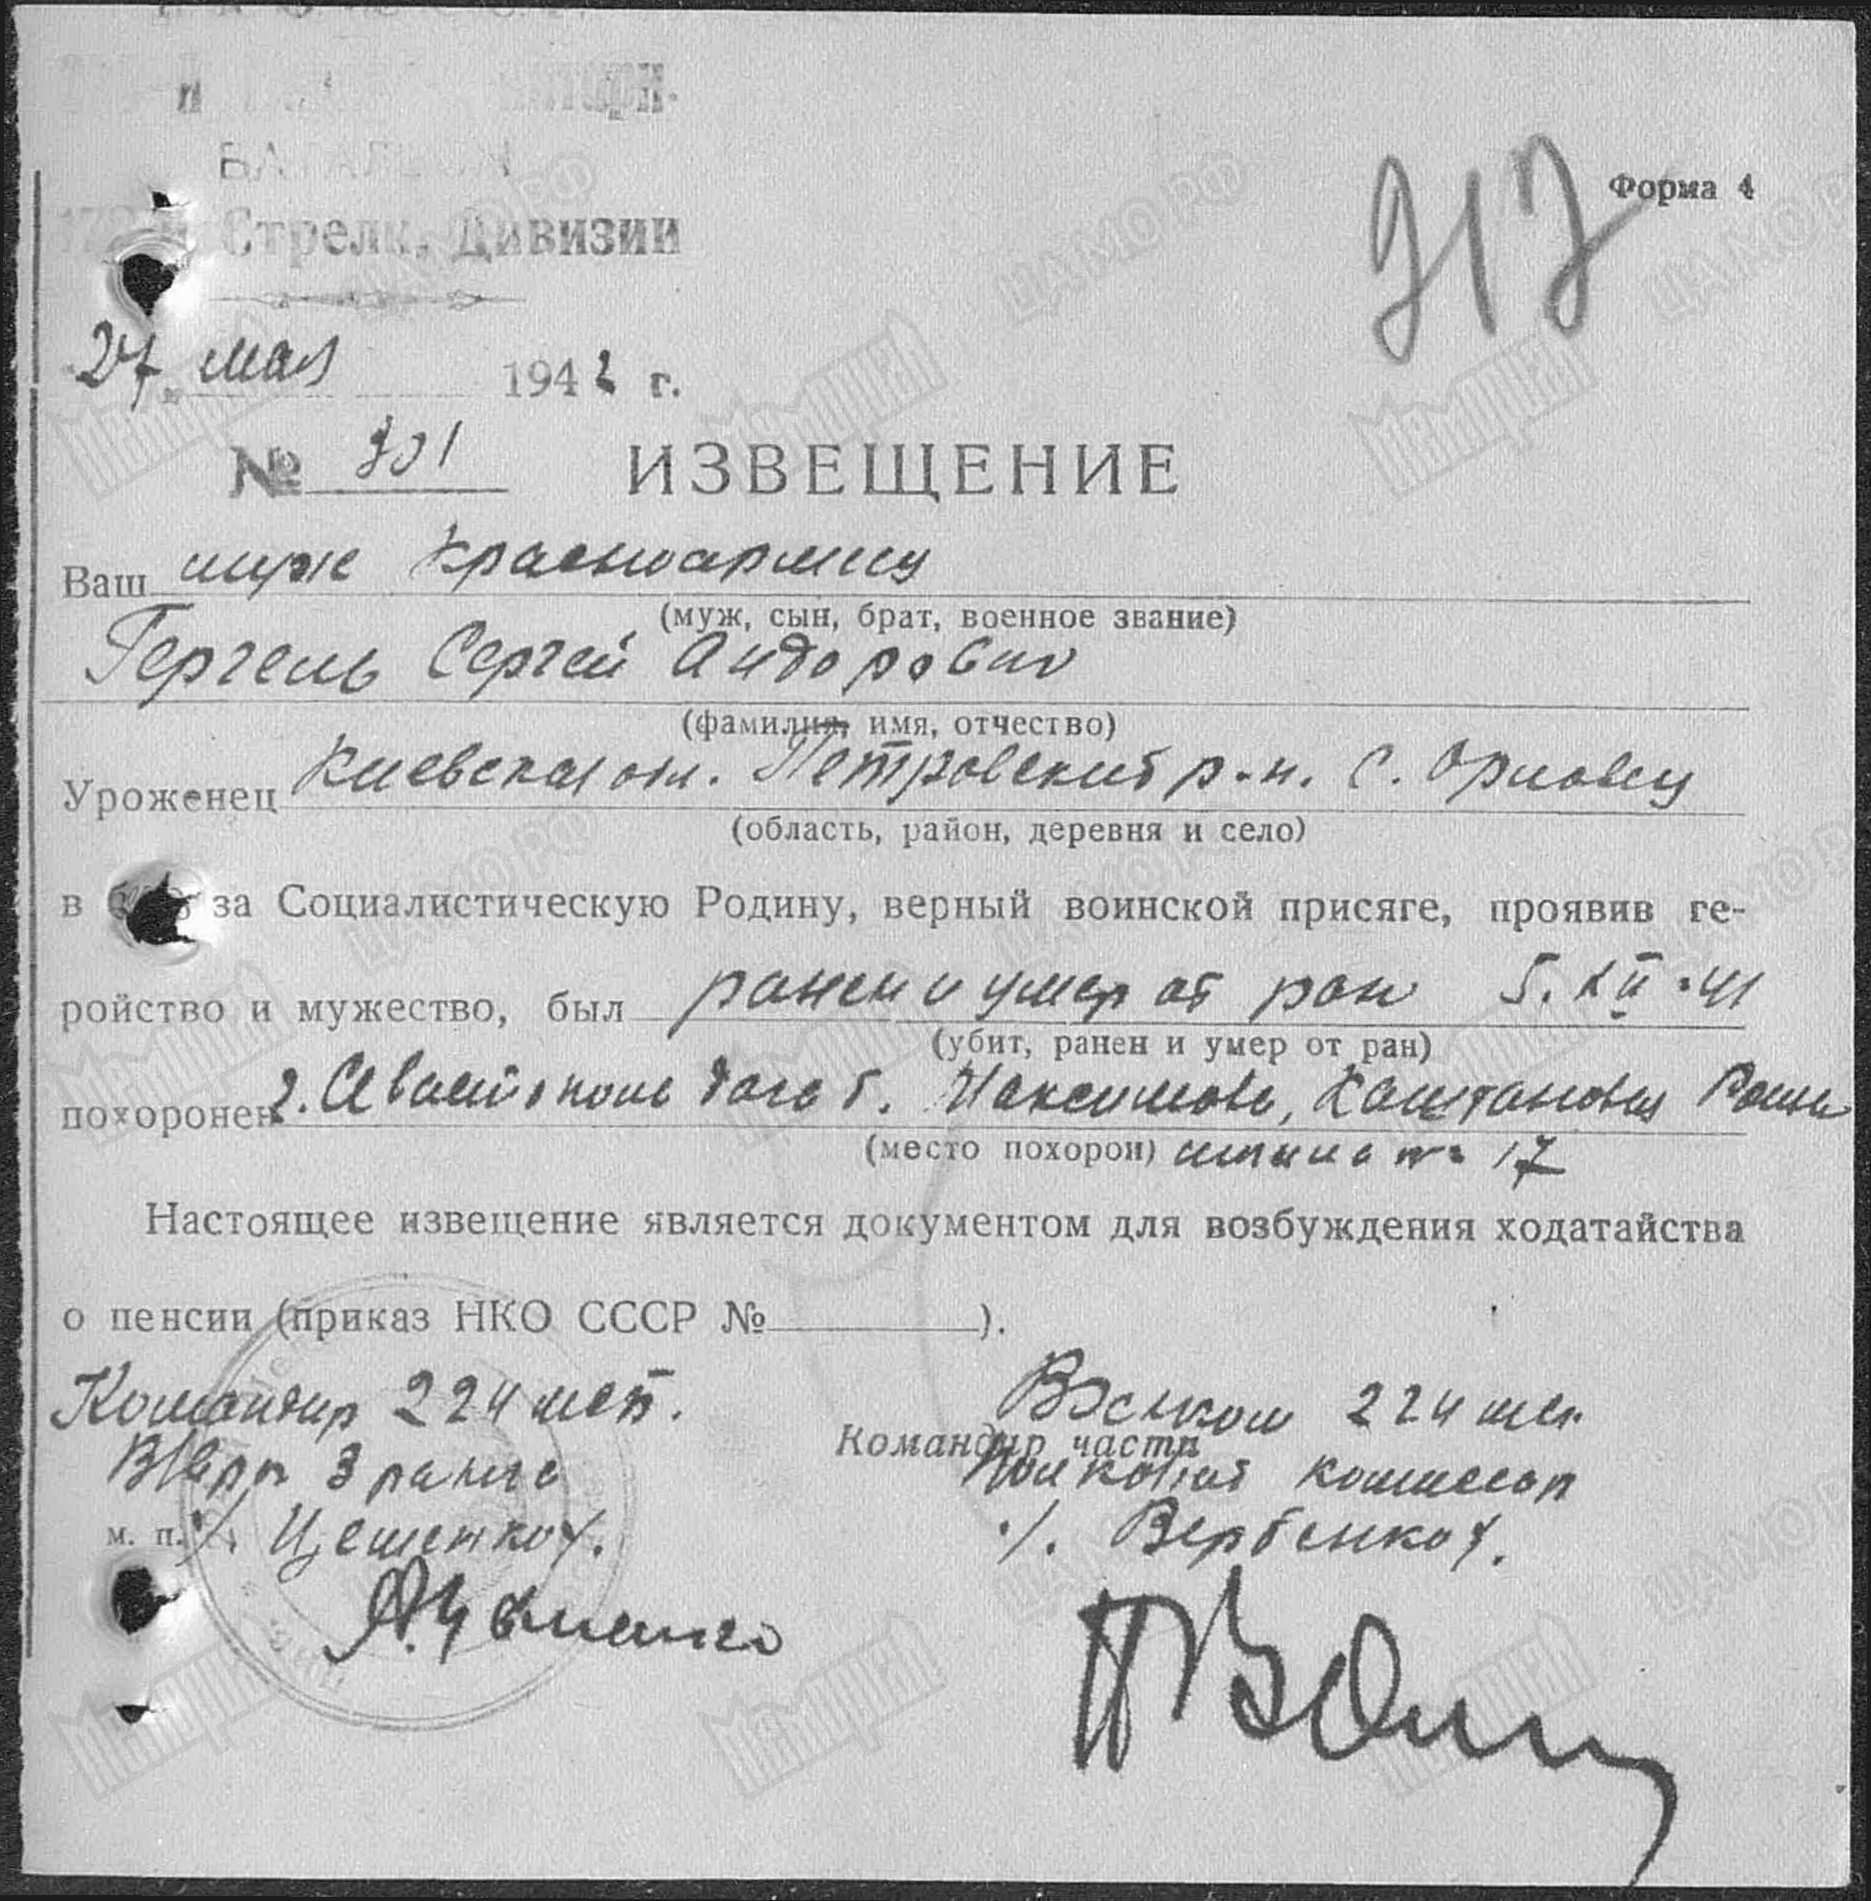 Стрелк. Дивизии
Форма 4
317
27 мая 1942 г.
№ 301 ИЗВЕЩЕНИЕ
Ваш муж красноармеец
(муж, сын, брат, военное звание)
Гергель Сергей Сидорович
(фамилия, имя, отчество)
Уроженец Киевская обл. Петровский р-н. с. Орловец
(область, район, деревня и село)
в за Социалистическую Родину, верный воинской присяге, проявив ге-
ройство и мужество, был ранен и умер от ран 5.XII.41
(убит, ранен и умер от ран)
похоронен г. Севастополь дача б. Максимова, Каштановая Роща
(место похорон) могила № 17
Настоящее извещение является документом для возбуждения ходатайства
о пенсии (приказ НКО СССР № ).
Командир 224 мсб. Военком 224 мсб
Командир части
В/врач 3 ранга Полковой комиссар
м. п. /. /. Вербенко /.